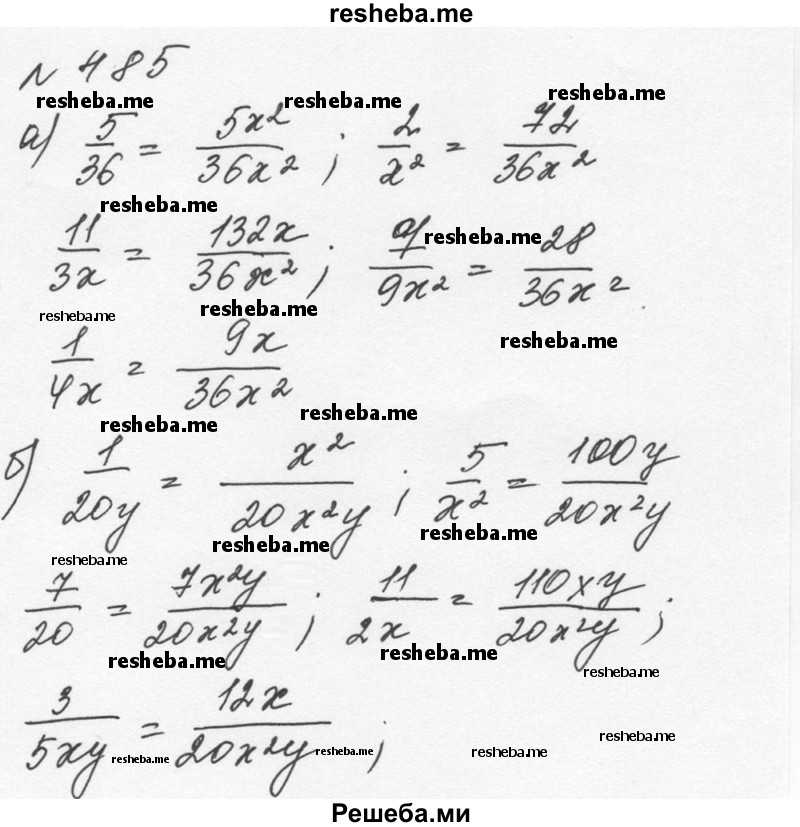 resheba.me
№ 485
resheba.me resheba.me resheba.me
а) 5/36 = 5x²/36x² ; 2/x² = 72/36x²
resheba.me
11/3x = 132x/36x² ; 7/9x² = 28/36x².
resheba.me
resheba.me resheba.me
resheba.me
1/4x = 9x/36x²
resheba.me resheba.me
б) 1/20y = x²/20x²y ; 5/x² = 100y/20x²y
resheba.me resheba.me resheba.me
7/20 = 7x²y/20x²y ; 11/2x = 110xy/20x²y ;
resheba.me resheba.me
resheba.me
3/5xy = 12x/20x²y ;
resheba.me resheba.me resheba.me resheba.me
Решеба.ми